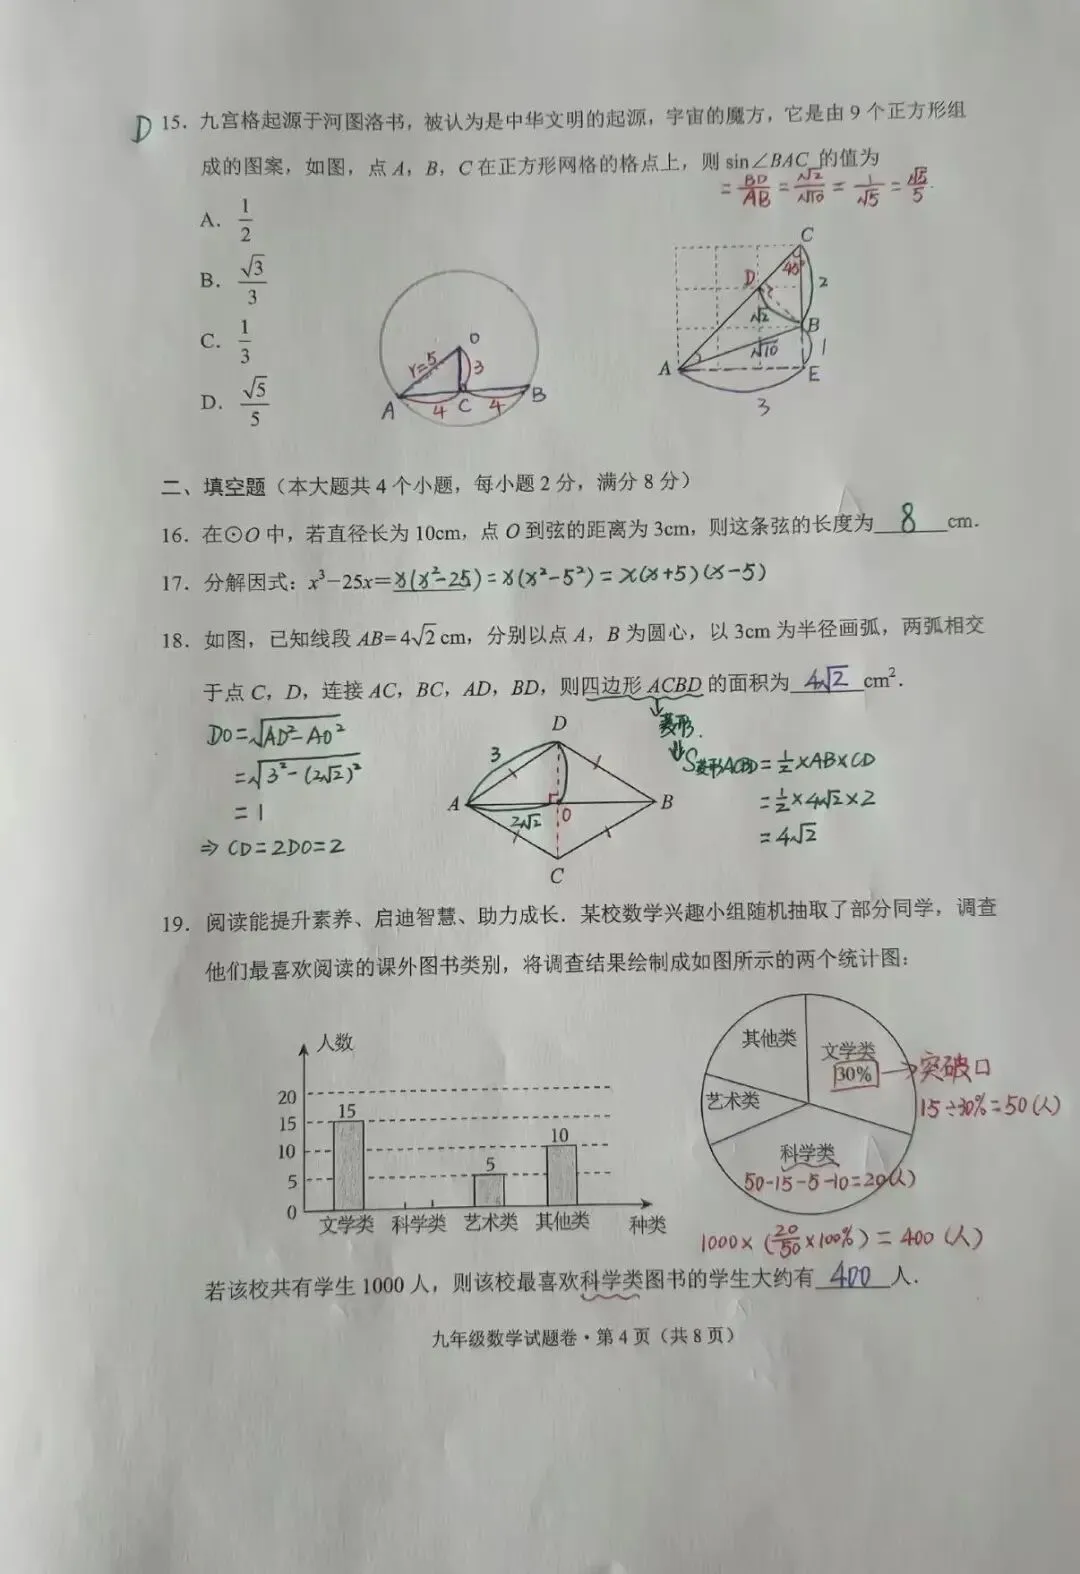 D 15．九宫格起源于河图洛书，被认为是中华文明的起源，宇宙的魔方，它是由 9 个正方形组
成的图案，如图，点 A，B，C 在正方形网格的格点上，则 sin∠BAC 的值为
= BD/AB = √2/√10 = 1/√5 = √5/5.
A．1/2
B．√3/3
C．1/3
D．√5/5
O
r=5
3
A 4 C 4 B
C
D 45° 2
√2 B
√10 1
A E
3
二、填空题（本大题共 4 个小题，每小题 2 分，满分 8 分）
16．在⊙O 中，若直径长为 10cm，点 O 到弦的距离为 3cm，则这条弦的长度为 8 cm．
17．分解因式：x³−25x=x(x²-25)=x(x²-5²)=x(x+5)(x-5)
18．如图，已知线段 AB=4√2 cm，分别以点 A，B 为圆心，以 3cm 为半径画弧，两弧相交
于点 C，D，连接 AC，BC，AD，BD，则四边形 ACBD 的面积为 4√2 cm²．
菱形.
DO=√AD²-AO²
=√3²-(2√2)²
=1
⇒ CD=2DO=2
D
3
A B
2√2 O
C
S菱形ACBD=1/2×AB×CD
=1/2×4√2×2
=4√2
19．阅读能提升素养、启迪智慧、助力成长．某校数学兴趣小组随机抽取了部分同学，调查
他们最喜欢阅读的课外图书类别，将调查结果绘制成如图所示的两个统计图：
人数
20
15 15
10 10
5 5
0
文学类 科学类 艺术类 其他类 种类
其他类 文学类
30% → 突破口
艺术类
15÷30%=50(人)
科学类
50-15-5-10=20(人)
1000×(20/50×100%)=400(人)
若该校共有学生 1000 人，则该校最喜欢科学类图书的学生大约有 400 人．
九年级数学试题卷·第 4 页（共 8 页）